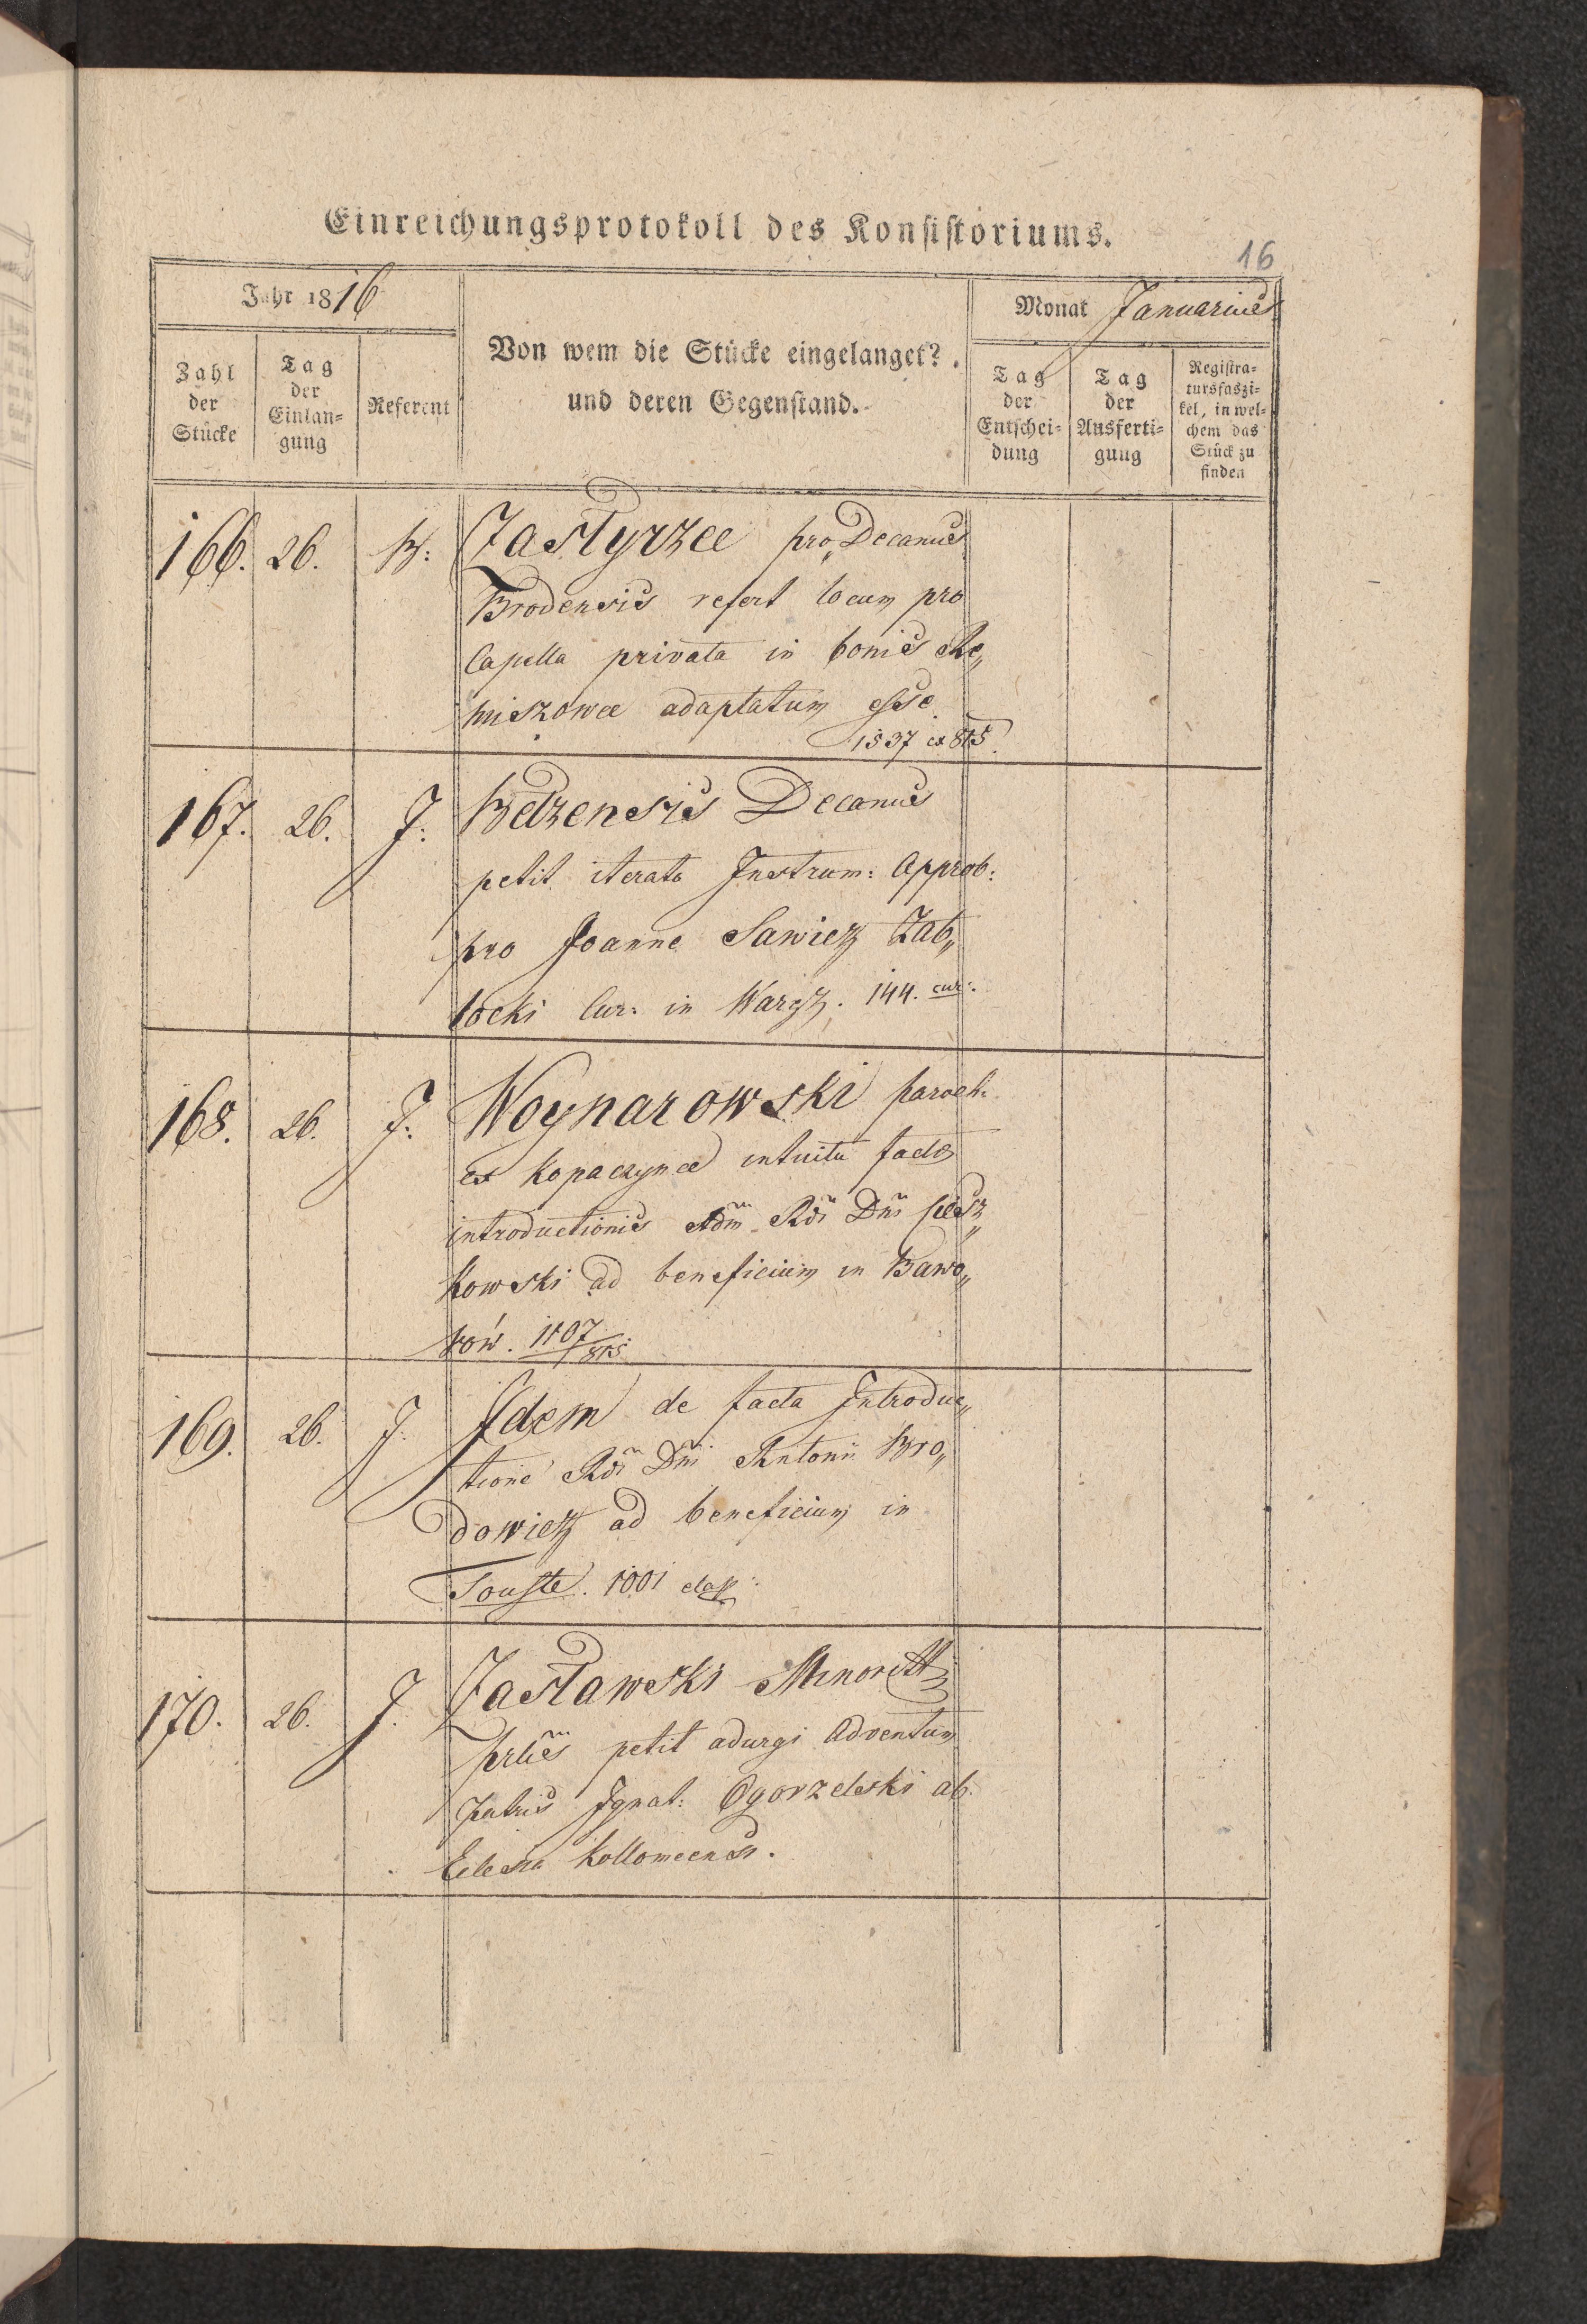 Einreichungsprotokoll des Konsistoriums.
16
Jahr 1816
Monat Januarius
Von wem die Stücke eingelanget?
und deren Gegenstand.
Zahl
der
Stücke
Tag
der
Einlan=
gung
Referent
Tag
der
Entschei=
dung
Tag
der
Ausferti=
gung
Registra=
tursfaszi=
kel, in wel=
chem das
Stück zu
finden
166. 26. Zastyrzec pro„Decanus
Brodensis refert locum pro
Capella privata in bonis Re„
miszowce adaptatum esse
1537 ex 815.
167. 26. J: Belzensis Decanus
petit iterato Instrum: Approb:
pro Joanne Sawicz Zab„
locki Cur: in Waręż. 144. cur:
168. 26. J: Woynarowski paroch:
ex Kopaczynce intuitu factæ
introductionis Adm Rdi Dni
kowski ad beneficium in Bawo„
rów. 1107/815
169. 26. J. Idem de facta Introduc„
tione Rdi Dni Antonii Bro„
dowicz ad beneficium in
Touste. 1001
170. 26. J. Zasławski Minorit:
petit adurgi Adventum
Patris Ignat: Ogorzelski ab
Kollomeensi.